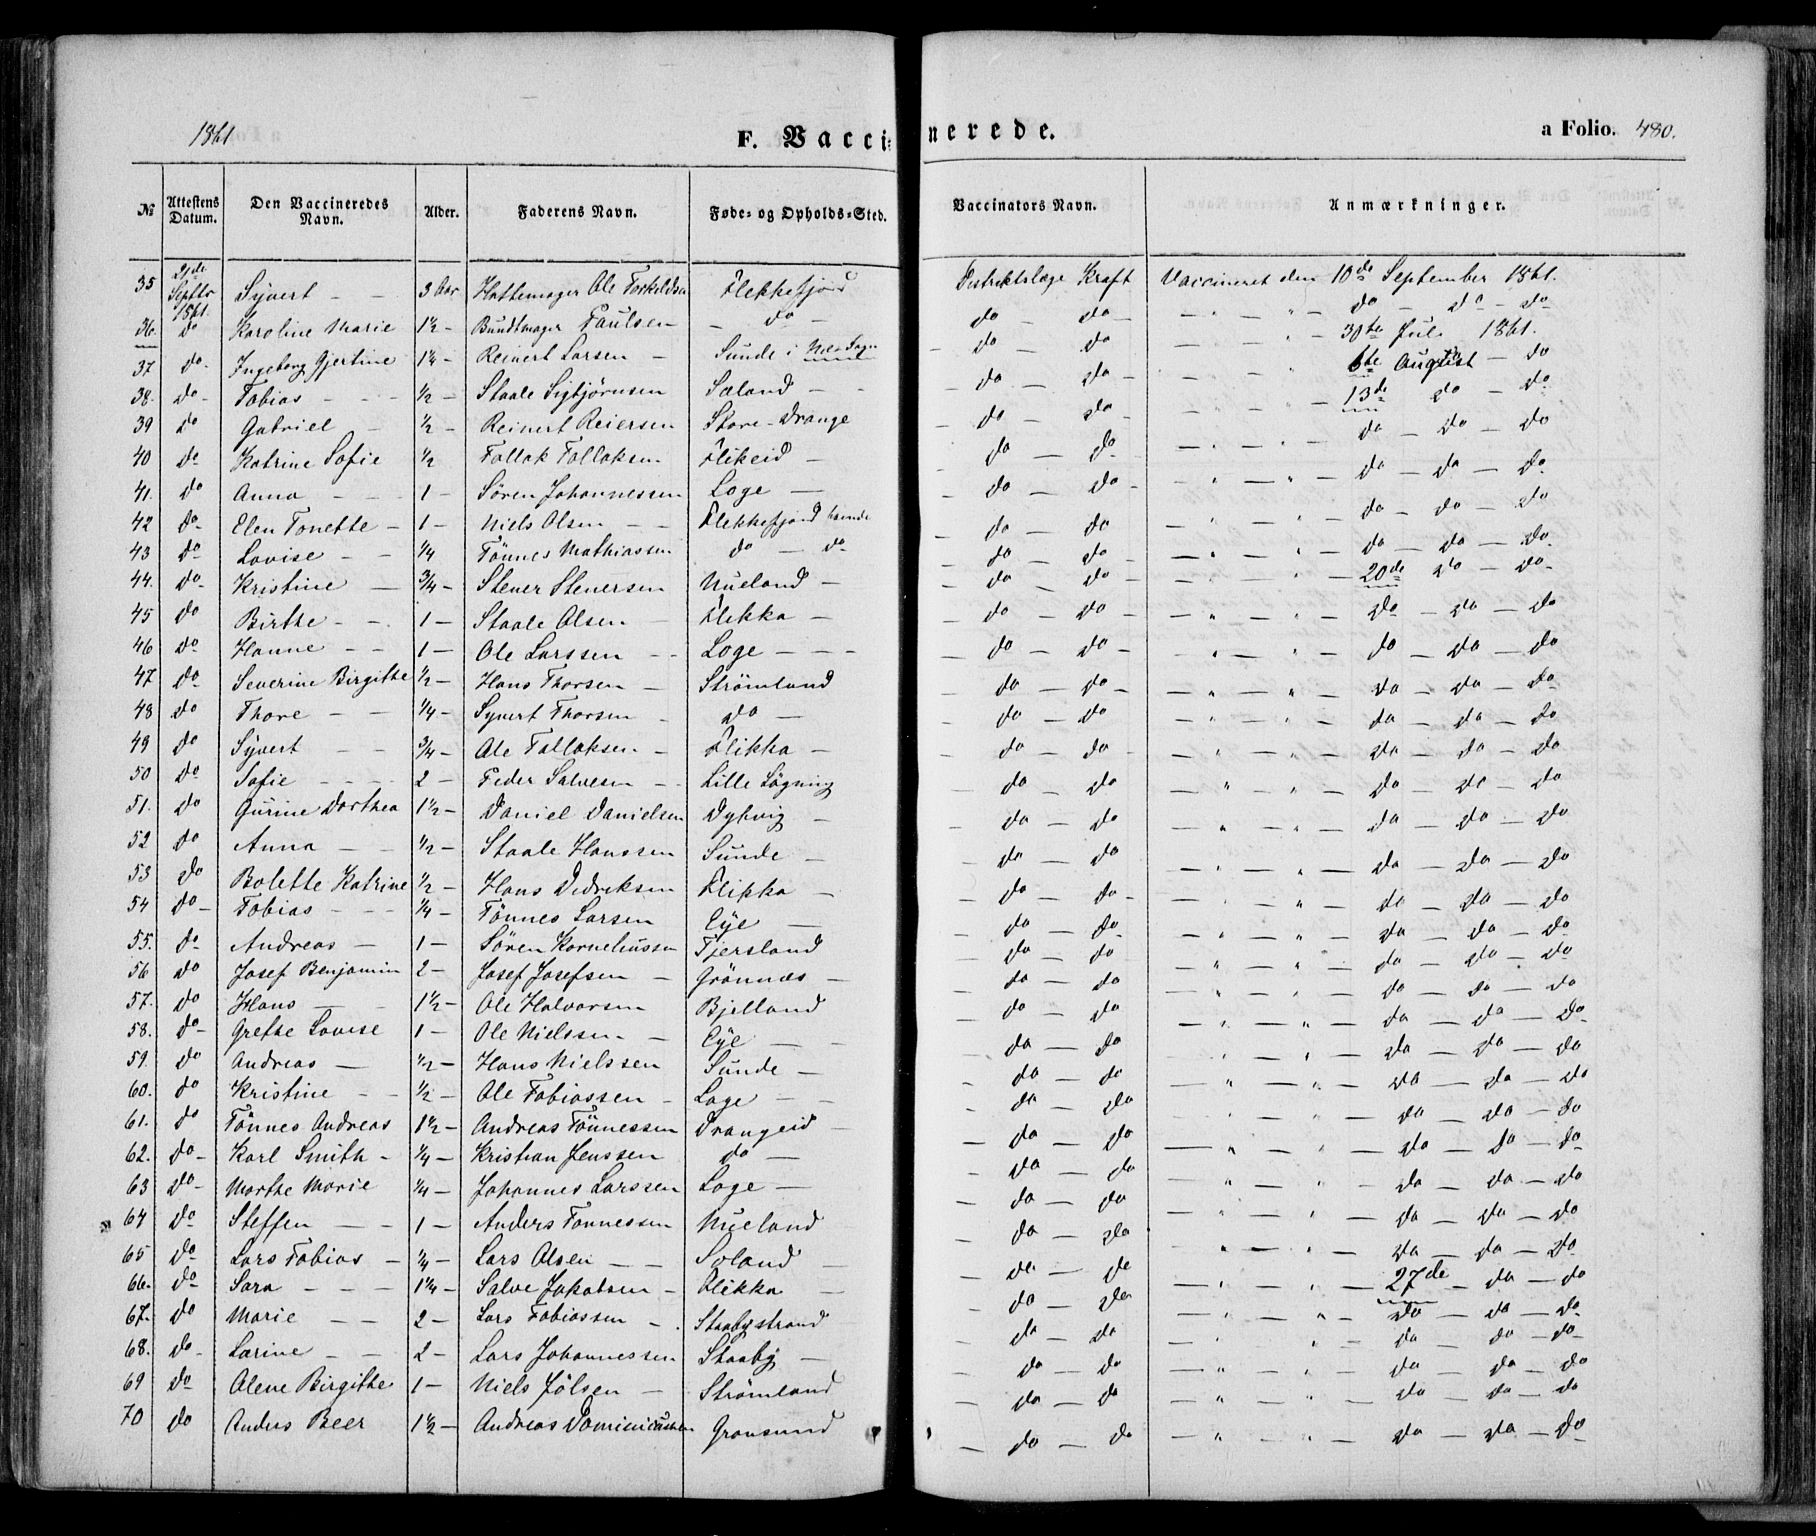 1861 F. Vaccinerede. a Folio. 480.
№ Attestens Datum. Den Vaccineredes Navn. Alder. Faderens Navn. Føde- og Opholds-Sted. Vaccinators Navn. Anmærkninger.
35 21de Septbr 1861. Syvert – – 3 Aar Hattemager Ole Torkelds Flekkefjord Distriktslæge Kraft Vaccineret den 10de September 1861.
36. do Karoline Marie 1½ – Bundtmager Paulsen – do – do – do – " " – do – do – do
37 do. Ingeborg Gjertine 1¼ – Reinert Larsen – Sunde i Nes Sogn – do – do – " " – 30te Juli 1861.
38. do – Tobias – – – ½ – Staale Sigbjørnsen Sæland – – do – do – " " – 6te August – do
39 do Gabriel – ½ – Reinert Reiersen Store-Drange – do – do – " " – 13de do – do
40 do Katrine Sofie ½ Tollak Tollaksen Flikeid – – do – do – " " – do – do – do
41. do Anna – – – 1 – Sören Johannessen Loge – – do – do – " " – do – do – do
42 do – Elen Tonette – 1 – Niels Olsen – – Flekkefjord – do – do – " " – do – do – do
43 do Lovise – – ¼ Tönnes Mathiassen do – do – do – do – " " – do – do – do
44. do – Kristine – ¾ – Stener Stenersen Nueland – – do – do – " " – 20de do – do
45 do Birthe – – 1 – Staale Olsen – Flikka – – do – do – " " – do – do – do
46 do Hanne – – 1 – Ole Larssen – – Loge – – – – do – do – " " – do – do – do
47 do Severine Birgithe ½ – Hans Thorsen – Strömland – do – do – " " – do – do – do
48 do Thore – – ¼ – Syvert Thorsen – do – – do – do – " " – do – do – do
49 do Syvert – – ¾ – Ole Tollaksen – Flikka – – do – do – " " – do – do – do
50 do Sofie – – – 2 – Peder Salvesen – – Lille Lögning – do – do – " " – do – do – do
51. do Gurine Dorthea 1½ – Daniel Danielsen Dybvig – – do – do – " " – do – do – do
52 do Anna – – ½ – Staale Hanssen Sunde – – do – do – " " – do – do – do
53 do Bolette Katrine ½ – Hans Didriksen Flikka – – do – do – " " – do – do – do
54 do – Tobias – – – ¼ – Tönnes Larsen Eye – – do – do – " " – do – do – do
55. do Andreas – 1 – Sören Korneliussen Tjersland – do – do – " " – do – do – do
56 do Josef Benjamin 2 – Josef Josefsen – Grönnæs – – do – do – " " – do – do – do
57. do Hans – – 1½ – Ole Halvorsen Bjelland – do – do – " " – do – do – do
58. do – Grethe Lovise 1 – Ole Nielssen – – Eye – – – do – do – " " – do – do – do
59. do Andreas – ½ – Hans Nielssen Sunde – – do – do – " " – do – do – do
60. do Kristine – ½ – Ole Tobiassen – Loge – – – do – do – " " – do – do – do
61. do Tönnes Andreas 1½ – Andreas Tönnessen Drangeid – – do – do – " " – do – do – do
62. do – Karl Smith – ¼ – Kristian Jenssen do – – do – do – " " – do – do – do
63 do – Marthe Marie ¼ – Johannes Larssen Loge – – do – do – " " – do – do – do
64 do Steffen – – 1 – Anders Tönnessen Nueland – do – do – " " – do – do – do
65 do Lars Tobias – ¼ – Lars Olsen – – Soland – – do – do – " " – do – do – do
66. do Sara – – – 1¼ – Salve Jakobsen – Flikka – – do – do – " " – 27de – do – do
67. do Marie – – 2 – Lars Tobiassen – Staabystrand – do – do – " " – do – do – do
68. do – Larine – – 2 – Lars Johannessen Staaby – – do – do – " " – do – do – do
69 do Alene Birgithe 1 – Niels Jölsen – Strömland – do – do – " " – do – do – do
70 do Anders Beer 1½ – Andreas Dominicussen Gronsund – do – do – " " – do – do – do